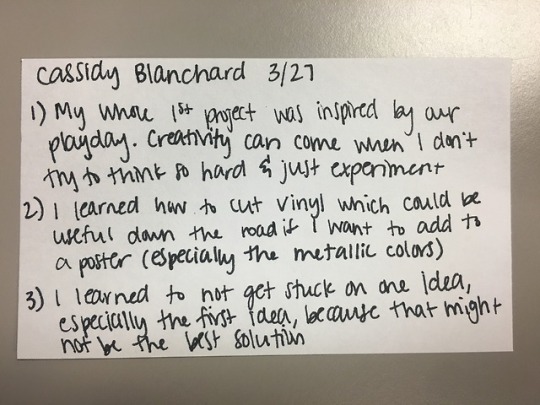 Cassidy Blanchard 3/27
1) My whole 1st project was inspired by our
playday. Creativity can come when I don't
try to think so hard & just experiment
2) I learned how to cut vinyl which could be
useful down the road if I want to add to
a poster (especially the metallic colors)
3) I learned to not get stuck on one idea,
especially the first idea, because that might
not be the best solution